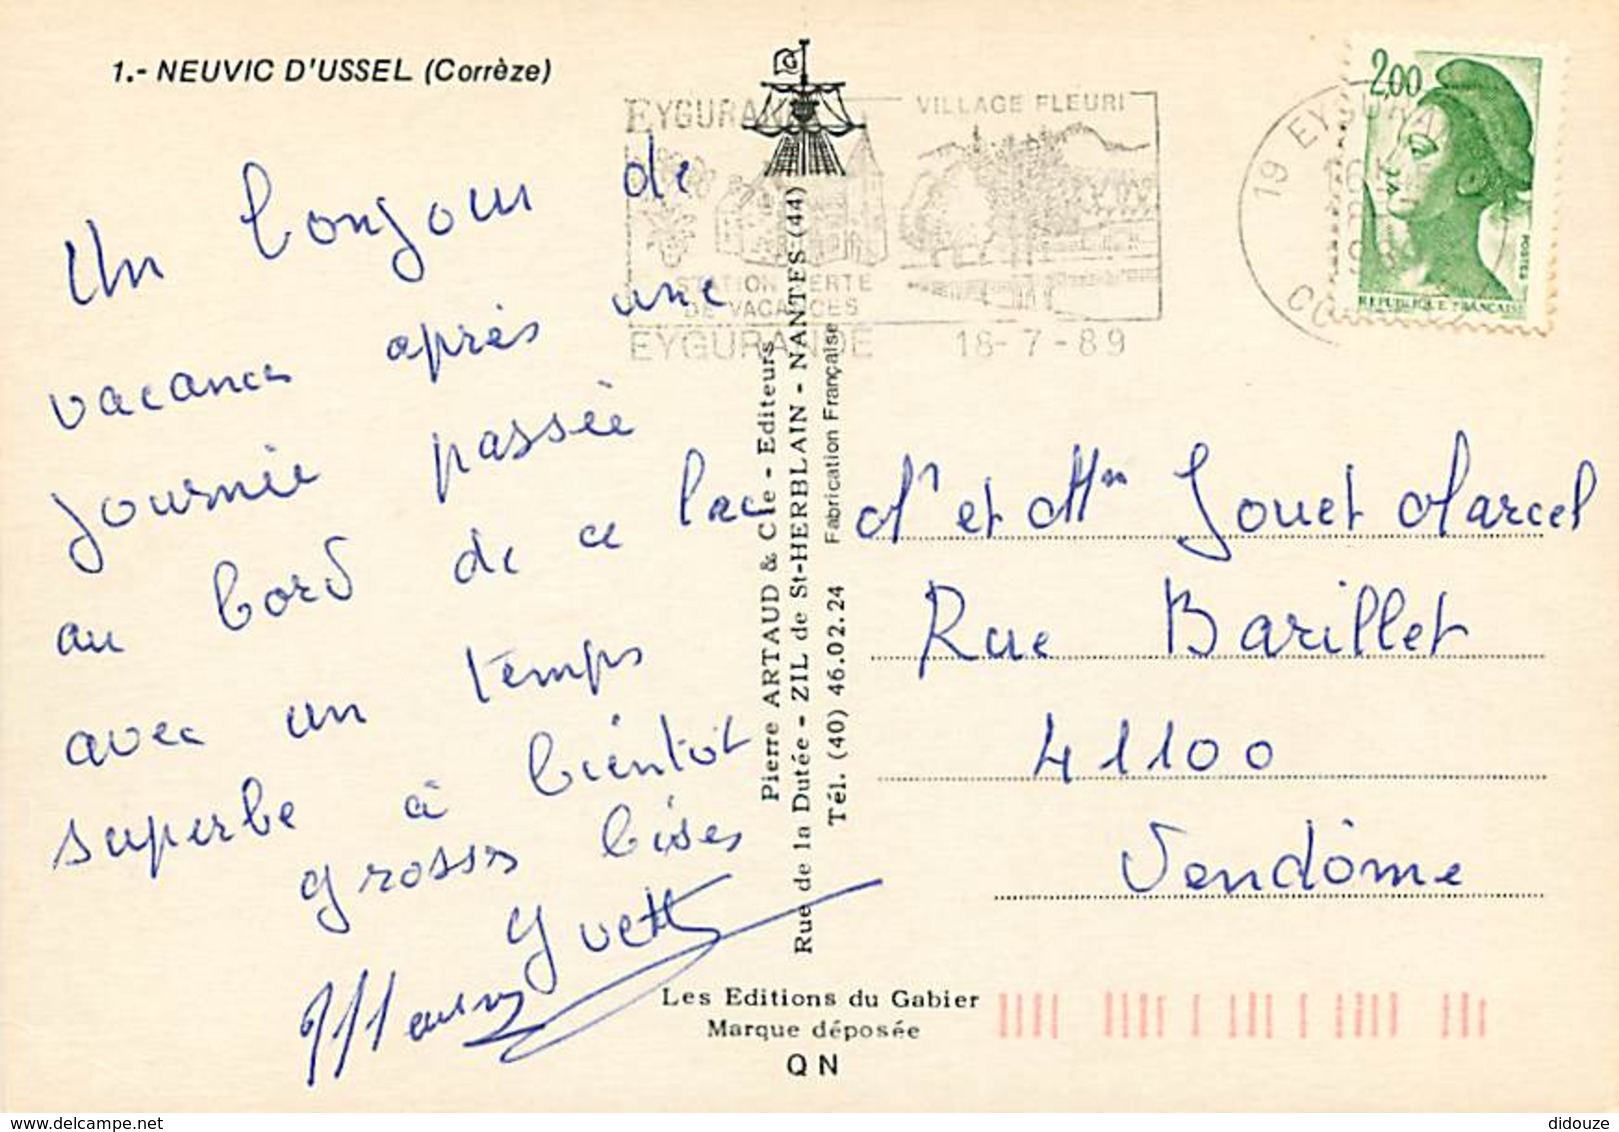 1.- NEUVIC D'USSEL (Corrèze)
EYGURANDE
VILLAGE FLEURI
STATION VERTE
DE VACANCES
EYGURANDE 18-7-89
19 EYGURANDE
2,00
POSTES
REPUBLIQUE FRANÇAISE
Un bonjour de
vacances après une
journée passée
au bord de ce lac
avec un temps
superbe à bientôt
grosses bises
Yvette
Pierre ARTAUD & Cie - Editeurs
Rue de la Dutée - ZIL de St-HERBLAIN - NANTES (44)
Tél. (40) 46.02.24 Fabrication Française
Mr et Mme Jouet Marcel
Rue Barillet
41100
Vendôme
Les Editions du Gabier
Marque déposée
QN
didouze